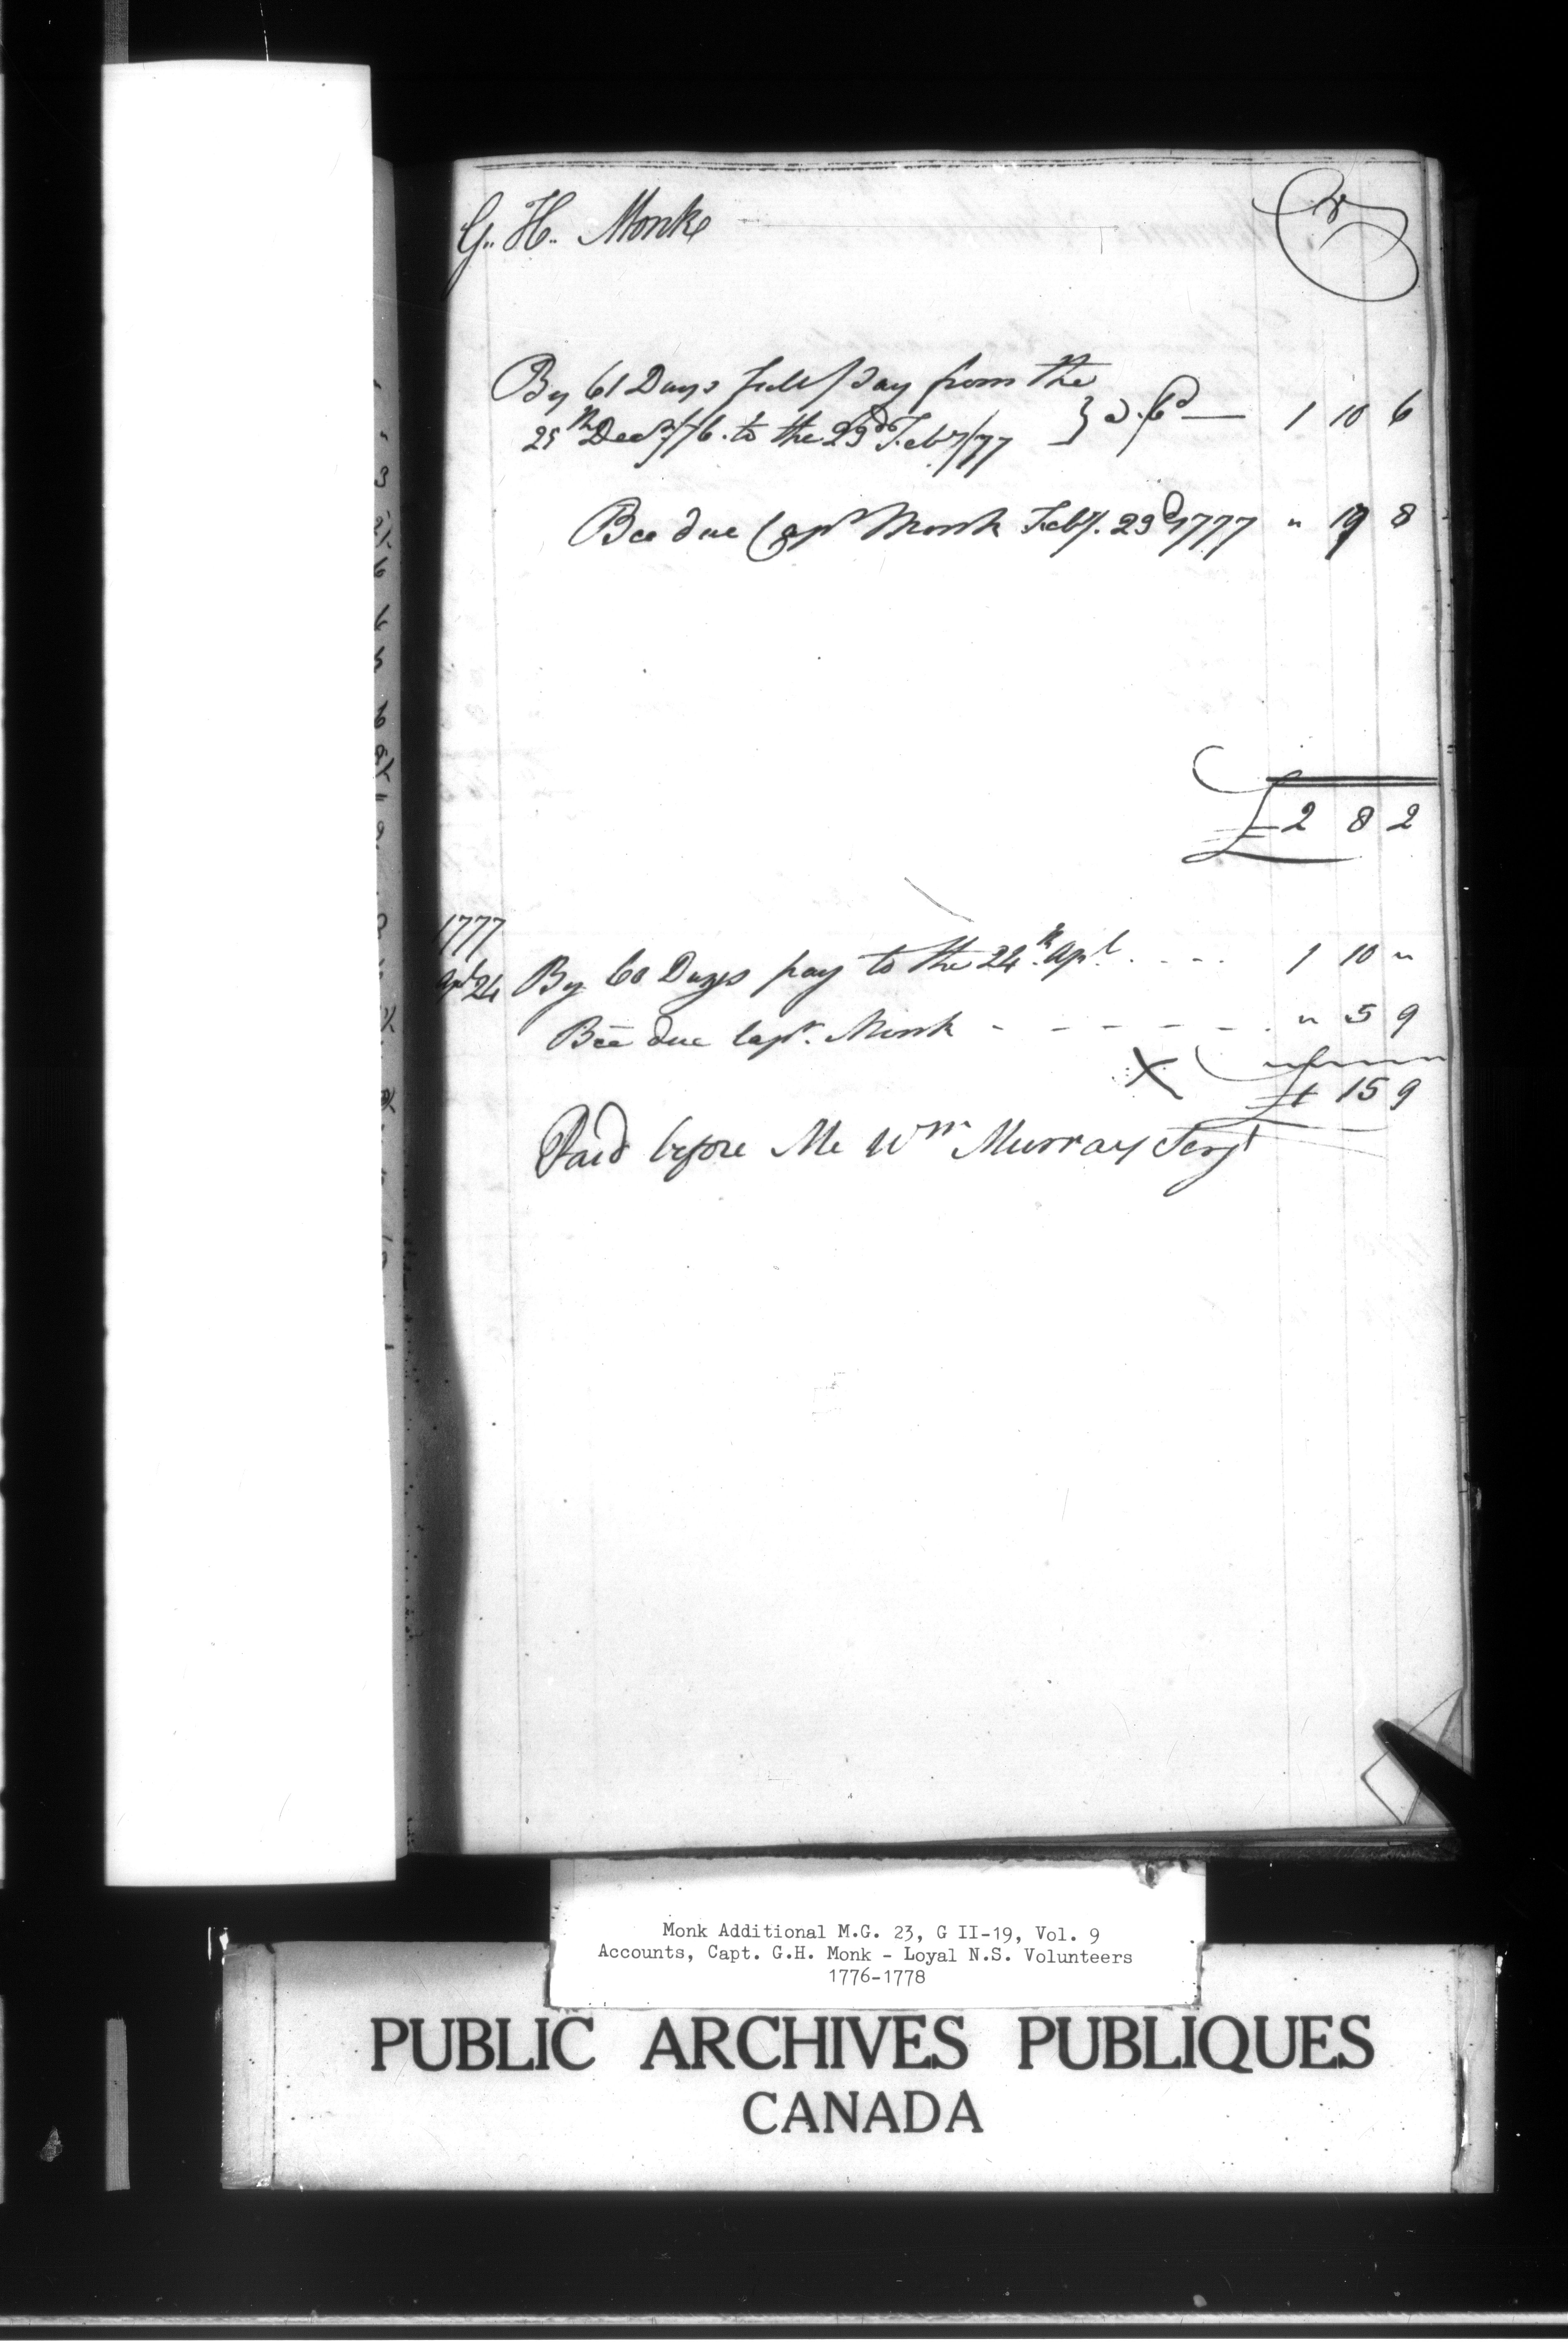 G. H. Monk Cr
By 61 Days full pay from the
25th Decr/76. to the 23d Feby/77 } @ 6d — 1 10 6
Bce due Capt Monk Feby. 23d 1777 " 17 8
£ 2 8 2
1777
Apl 24 By 60 Days pay to the 24th. Apl. . . . . 1 10 "
Bce due Capt. Monk - - - - - - . " 5 9
X £1 15 9
Paid before Me Wm Murray Serjt
Monk Additional M.G. 23, G II-19, Vol. 9
Accounts, Capt. G.H. Monk - Loyal N.S. Volunteers
1776-1778
PUBLIC ARCHIVES PUBLIQUES
CANADA